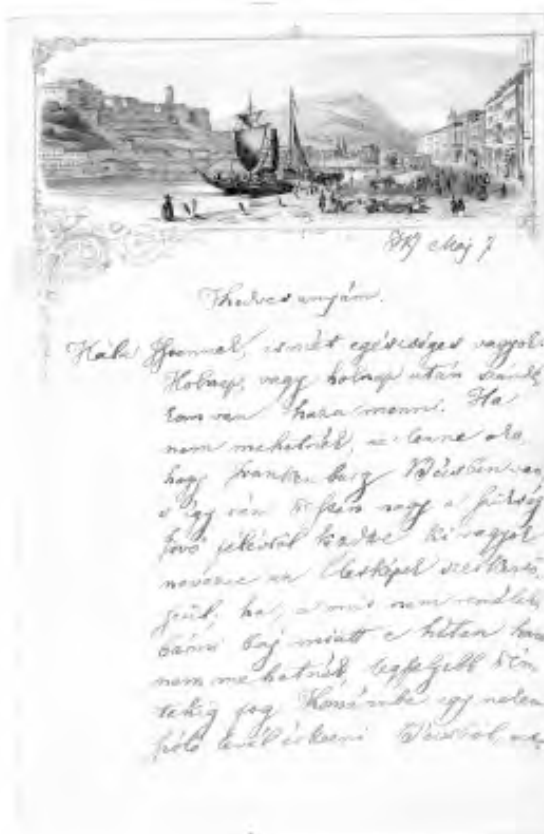 Máj 7
Kedves anyám.
Hála Istennek, ismét egésséges vagyok
Holnap, vagy holnap után szándé
kom van haza menni. Ha
nem mehetnék, az lenne oka,
hogy Frankenburg Bécsben van
s így rám nagy a szükség
jövő félévtől kezdve ki vagyok
nevezve az Életképek szerkesztő
jéül, ha, a mit nem remélek,
bármi baj miatt e héten haza
nem mehetnék, legfeljebb
fog Komáromba egy nekem
szóló levél érkezni Bécsből,